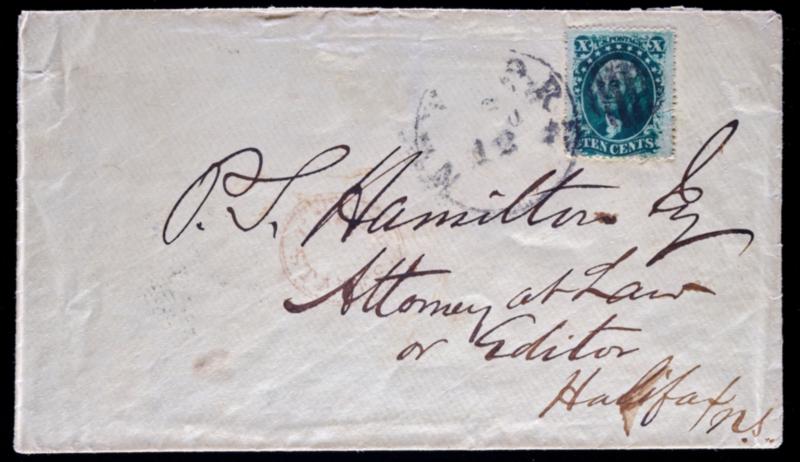 X U.S. POSTAGE X
TEN CENTS
P. S. Hamilton Esq
Attorney at Law
or Editor
Halifax N.S.